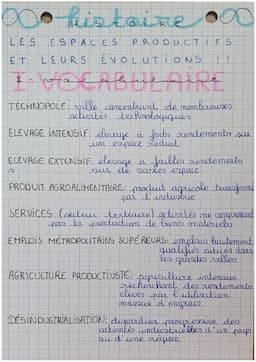 histoire
HISTOIRE
LES ESPACES PRODUCTIFS
ET LEURS ÉVOLUTIONS !!
I-VOCABULAIRE
I-vocabulaire
TECHNOPOLE: ville concentrant de nombreuses
activités technologiques
ELEVAGE INTENSIF: élevage à forts rendements sur
un espace réduit
ELEVAGE EXTENSIF: élevage à faibles rendements
sur de vastes espace
PRODUIT AGROALIMENTAIRE: produit agricole transformé
par l'industrie
SERVICES: (secteur tertiaire) activités ne comprenant
pas la production de biens matériels
EMPLOIS MÉTROPOLITAINS SUPÉRIEURS: emplois hautement
qualifiés situés dans
les grandes villes
AGRICULTURE PRODUCTIVISTE: agriculture intensive
recherchant des rendements
élevés par l'utilisation
massive d'engrais
DÉSINDUSTRIALISATION: disparition progressive des
activités industrielles d'un pays
ou d'une région